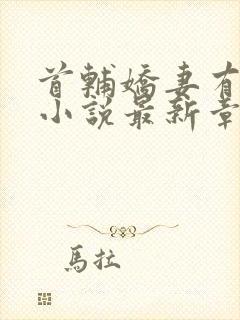 首輔嬌妻有
小說最新章
馬拉